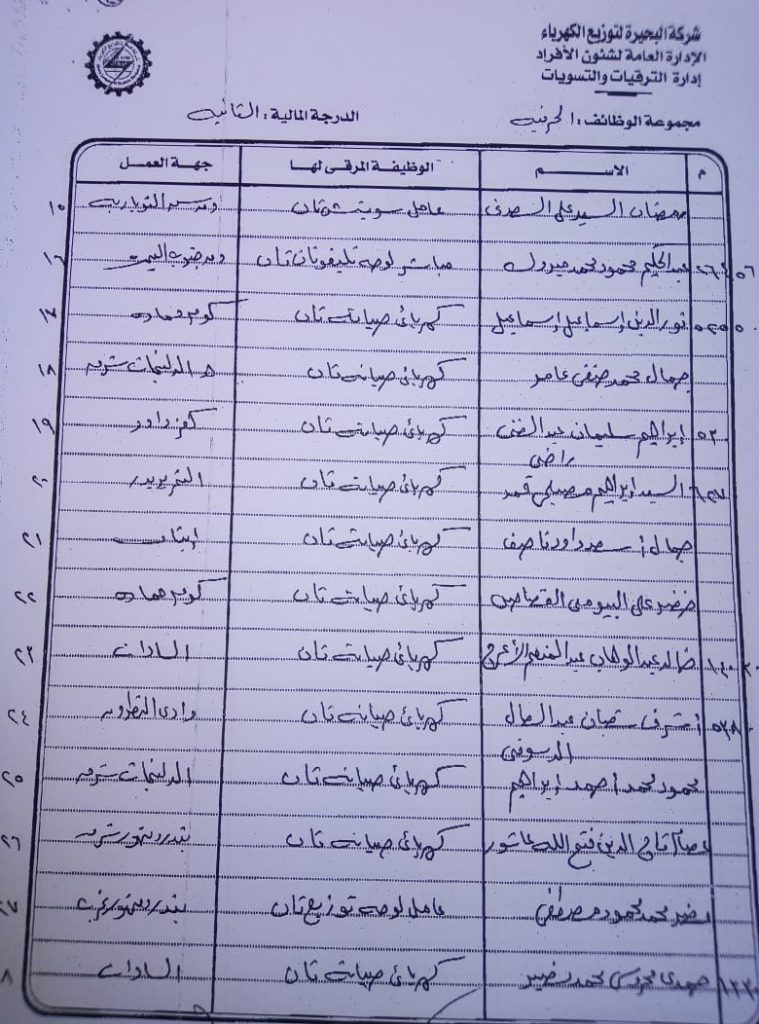 شركة البحيرة لتوزيع الكهرباء
الإدارة العامة لشئون الأفراد
إدارة الترقيات والتسويات
مجموعة الوظائف : الحرفيه الدرجة المالية : الثانيه
م الاسم الوظيفة المرقى لها جهة العمل
رمضان السيد على عامل سويتش ثان ١٥
عبد الحكيم محمود محمد مبروك مباشر لوحة تليفونات ثان ١٦
نور الدين إسماعيل إسماعيل كهربائى صيانه ثان كوم حماده ١٧
جمال محمد حنفى عامر كهربائى صيانه ثان الدلنجات شرق ١٨
إبراهيم سليمان عبد الغنى كهربائى صيانه ثان كفر داود ١٩
راضى
السيد إبراهيم كهربائى صيانه ثان التحرير ٢٠
جمال سعد داود ناصف كهربائى صيانه ثان ٢١
خضر على البيومى القصاص كهربائى صيانه ثان كوم حماده ٢٢
خالد عبد الوهاب عبد المنعم الأعرج كهربائى صيانه ثان السادات ٢٣
أشرف عبد العال كهربائى صيانه ثان وادى النطرون ٢٤
الدسوقى
محمود محمد أحمد إبراهيم كهربائى صيانه ثان الدلنجات شرق ٢٥
عصام تاج الدين فتح الله عاشور كهربائى صيانه ثان بندر دمنهور شرق ٢٦
محمد محمود مصطفى عامل لوحة توزيع ثان بندر دمنهور غرب ٢٧
محمد كهربائى صيانه ثان السادات ٨